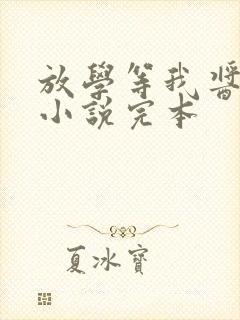 放學等我醬
小說完本
夏冰寶